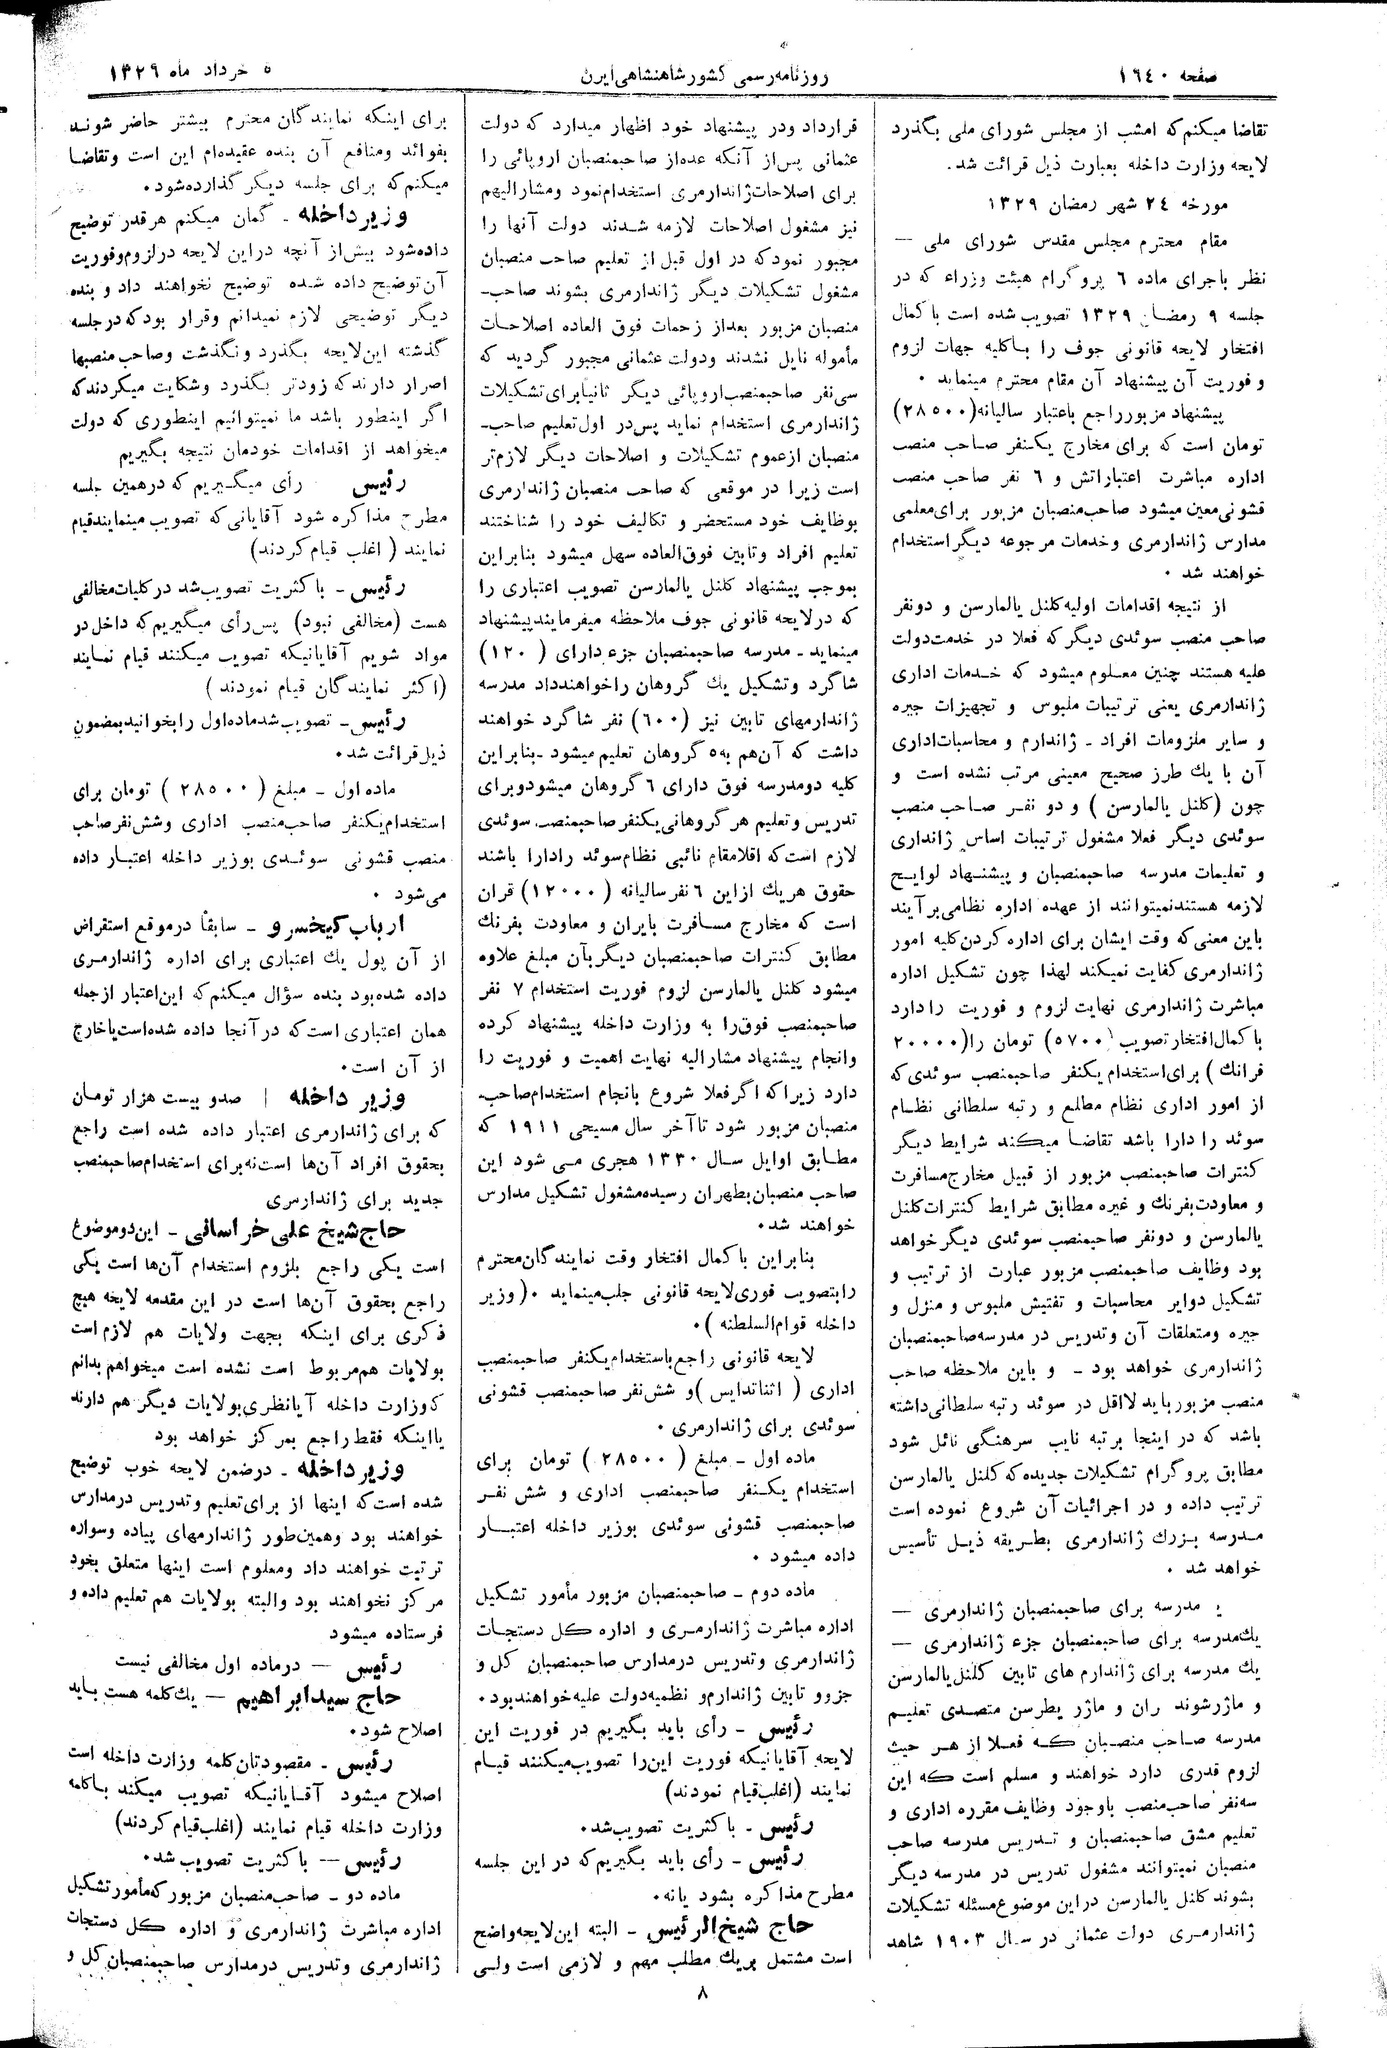 صفحه ۱٦٤۰
روزنامه رسمی کشور شاهنشاهی ایرن
٥ خرداد ماه ۱۳۲۹
تقاضا میکنم که امشب از مجلس شورای ملی بگذرد
لایحه وزارت داخله بعبارت ذیل قرائت شد.
مورخه ۲٤ شهر رمضان ۱۳۲۹
مقام محترم مجلس مقدس شورای ملی —
نظر باجرای ماده ٦ پروگرام هیئت وزراء که در
جلسه ۹ رمضان ۱۳۲۹ تصویب شده است با کمال
افتخار لایحه قانونی جوف را باکلیه جهات لزوم
و فوریت آن پیشنهاد آن مقام محترم مینماید .
پیشنهاد مزبور راجع باعتبار سالیانه (۲۸٥۰۰)
تومان است که برای مخارج یکنفر صاحب منصب
اداره مباشرت اعتباراتش و ٦ نفر صاحب منصب
قشونی معین میشود صاحب منصبان مزبور برای معلمی
مدارس ژاندارمری وخدمات مرجوعه دیگر استخدام
خواهند شد .
از نتیجه اقدامات اولیه کلنل یالمارسن و دونفر
صاحب منصب سوئدی دیگر که فعلا در خدمت دولت
علیه هستند چنین معلوم میشود که خدمات اداری
ژاندارمری یعنی ترتیبات ملبوس و تجهیزات جیره
و سایر ملزومات افراد - ژاندارم و محاسبات اداری
آن با یك طرز صحیح معینی مرتب نشده است و
چون (کلنل یالمارسن ) و دو نفر صاحب منصب
سوئدی دیگر فعلا مشغول ترتیبات اساس ژانداری
و تعلیمات مدرسه صاحبمنصبان و پیشنهاد لوایح
لازمه هستند نمیتوانند از عهده اداره نظامی برآیند
باین معنی که وقت ایشان برای اداره کردن کلیه امور
ژاندارمری کفایت نمیکند لهذا چون تشکیل اداره
مباشرت ژاندارمری نهایت لزوم و فوریت را دارد
با کمال افتخار تصویب (٥۷۰۰) تومان را (۲۰۰۰۰
فرانك ) برای استخدام یکنفر صاحبمنصب سوئدی که
از امور اداری نظام مطلع و رتبه سلطانی نظام
سوئد را دارا باشد تقاضا میکند شرایط دیگر
کنترات صاحبمنصب مزبور از قبیل مخارج مسافرت
و معاودت بفرنك و غیره مطابق شرایط کنترات کلنل
یالمارسن و دونفر صاحبمنصب سوئدی دیگر خواهد
بود وظایف صاحبمنصب مزبور عبارت از ترتیب و
تشکیل دوایر محاسبات و تفتیش ملبوس و منزل و
جیره ومتعلقات آن وتدریس در مدرسه صاحبمنصبان
ژاندارمری خواهد بود - و باین ملاحظه صاحب
منصب مزبور باید لااقل در سوئد رتبه سلطانی داشته
باشد که در اینجا برتبه نایب سرهنگی نائل شود
مطابق پروگرام تشکیلات جدیده که کلنل یالمارسن
ترتیب داده و در اجرائیات آن شروع نموده است
مدرسه بزرك ژاندارمری بطریقه ذیل تأسیس
خواهد شد .
مدرسه برای صاحبمنصبان ژاندارمری —
یك مدرسه برای صاحبمنصبان جزء ژاندارمری —
یك مدرسه برای ژاندارم های تابین کلنل یالمارسن
و ماژر شوند ران و ماژر یطرسن متصدی تعلیم
مدرسه صاحب منصبان که فعلا از هر حیث
لزوم قدری دارد خواهند و مسلم است که این
سه نفر صاحب منصب باوجود وظایف مقرره اداری و
تعلیم مشق صاحبمنصبان و تدریس مدرسه صاحب
منصبان نمیتوانند مشغول تدریس در مدرسه دیگر
بشوند کلنل یالمارسن دراین موضوع مسئله تشکیلات
ژاندارمری دولت عثمانی در سال ۱۹۰۳ شاهد
قرارداد ودر پیشنهاد خود اظهار میدارد که دولت
عثمانی پس از آنکه عده از صاحبمنصبان اروپائی را
برای اصلاحات ژاندارمری استخدام نمود ومشارالیهم
نیز مشغول اصلاحات لازمه شدند دولت آنها را
مجبور نمود که در اول قبل از تعلیم صاحب منصبان
مشغول تشکیلات دیگر ژاندارمری بشوند صاحب-
منصبان مزبور بعداز زحمات فوق العاده اصلاحات
مأموله نایل نشدند ودولت عثمانی مجبور گردید که
سی نفر صاحبمنصب اروپائی دیگر ثانیا برای تشکیلات
ژاندارمری استخدام نماید پس در اول تعلیم صاحب-
منصبان از عموم تشکیلات و اصلاحات دیگر لازم تر
است زیرا در موقعی که صاحب منصبان ژاندارمری
بوظایف خود مستحضر و تکالیف خود را شناختند
تعلیم افراد وتابین فوق العاده سهل میشود بنابراین
بموجب پیشنهاد کلنل یالمارسن تصویب اعتباری را
که در لایحه قانونی جوف ملاحظه میفرمایند پیشنهاد
مینماید - مدرسه صاحبمنصبان جزء دارای (۱۲۰)
شاگرد وتشکیل یك گروهان را خواهند داد مدرسه
ژاندارمهای تابین نیز (٦۰۰) نفر شاگرد خواهند
داشت که آن هم به ٥ گروهان تعلیم میشود - بنابراین
کلیه دومدرسه فوق دارای ٦ گروهان میشود وبرای
تدریس وتعلیم هر گروهانی یکنفر صاحبمنصب سوئدی
لازم است که اقلا مقام نائبی نظام سوئد را دارا باشند
حقوق هریك از این ٦ نفر سالیانه (۱۲۰۰۰) قران
است که مخارج مسافرت بایران و معاودت بفرنك
مطابق کنترات صاحبمنصبان دیگر بآن مبلغ علاوه
میشود کلنل یالمارسن لزوم فوریت استخدام ۷ نفر
صاحبمنصب فوق را به وزارت داخله پیشنهاد کرده
وانجام پیشنهاد مشارالیه نهایت اهمیت و فوریت را
دارد زیراکه اگر فعلا شروع بانجام استخدام صاحب-
منصبان مزبور شود تا آخر سال مسیحی ۱۹۱۱ که
مطابق اوایل سال ۱۳۳۰ هجری می شود این
صاحب منصبان بطهران رسیده مشغول تشکیل مدارس
خواهند شد.
بنابراین با کمال افتخار وقت نمایندگان محترم
را بتصویب فوری لایحه قانونی جلب مینماید . (وزیر
داخله قوام السلطنه ).
لایحه قانونی راجع باستخدام یکنفر صاحبمنصب
اداری ( اثنا ندایس ) و شش نفر صاحبمنصب قشونی
سوئدی برای ژاندارمری .
ماده اول - مبلغ ( ۲۸٥۰۰ ) تومان برای
استخدام یکنفر صاحبمنصب اداری و شش نفر
صاحبمنصب قشونی سوئدی بوزیر داخله اعتبار
داده میشود .
ماده دوم - صاحبمنصبان مزبور مأمور تشکیل
اداره مباشرت ژاندارمری و اداره کل دستجات
ژاندارمری وتدریس در مدارس صاحبمنصبان کل و
جزوو تابین ژاندارم و نظمیه دولت علیه خواهند بود .
رئیس - رأی باید بگیریم در فوریت این
لایحه آقایانیکه فوریت این را تصویب میکنند قیام
نمایند (اغلب قیام نمودند)
رئیس - با کثریت تصویب شد.
رئیس - رأی باید بگیریم که در این جلسه
مطرح مذاکره بشود یا نه.
حاج شیخ الرئیس - البته این لایحه واضح
است مشتمل بریك مطلب مهم و لازمی است ولی
برای اینکه نمایندگان محترم بیشتر حاضر شوند
بفوائد ومنافع آن بنده عقیده ام این است وتقاضا
میکنم که برای جلسه دیگر گذارده شود.
وزیر داخله - گمان میکنم هر قدر توضیح
داده شود بیش از آنچه دراین لایحه در لزوم وفوریت
آن توضیح داده شده توضیح نخواهند داد و بنده
دیگر توضیحی لازم نمیدانم وقرار بود که در جلسه
گذشته این لایحه بگذرد ونگذشت وصاحب منصبها
اصرار دارند که زودتر بگذرد وشکایت میکردند که
اگر اینطور باشد ما نمیتوانیم اینطوری که دولت
میخواهد از اقدامات خودمان نتیجه بگیریم
رئیس رأی میگیریم که درهمین جلسه
مطرح مذاکره شود آقایانی که تصویب مینمایند قیام
نمایند ( اغلب قیام کردند)
رئیس - با کثریت تصویب شد در کلیات مخالفی
هست (مخالفی نبود) پس رأی میگیریم که داخل در
مواد شویم آقایانیکه تصویب میکنند قیام نمایند
(اکثر نمایندگان قیام نمودند )
رئیس - تصویب شد ماده اول را بخوانید بمضمون
ذیل قرائت شد.
ماده اول - مبلغ ( ۲۸٥۰۰ ) تومان برای
استخدام یکنفر صاحب منصب اداری وشش نفر صاحب
منصب قشونی سوئدی بوزیر داخله اعتبار داده
می شود .
ارباب کیخسرو - سابقاً در موقع استقراض
از آن پول یك اعتباری برای اداره ژاندارمری
داده شده بود بنده سؤال میکنم که این اعتبار از جمله
همان اعتباری است که در آنجا داده شده است یا خارج
از آن است.
وزیر داخله | صدو بیست هزار تومان
که برای ژاندارمری اعتبار داده شده است راجع
بحقوق افراد آن ها است نه برای استخدام صاحبمنصب
جدید برای ژاندارمری
حاج شیخ علی خراسانی - این دو موضوع
است یکی راجع بلزوم استخدام آن ها است یکی
راجع بحقوق آن ها است در این مقدمه لایحه هیچ
ذکری برای اینکه بجهت ولایات هم لازم است
بولایات هم مربوط است نشده است میخواهم بدانم
که وزارت داخله آیا نظری بولایات دیگر هم دارند
یا اینکه فقط راجع بمرکز خواهد بود
وزیر داخله - درضمن لایحه خوب توضیح
شده است که اینها از برای تعلیم وتدریس درمدارس
خواهند بود وهمین طور ژاندارمهای پیاده وسواره
ترتیب خواهند داد ومعلوم است اینها متعلق بخود
مرکز نخواهند بود والبته بولایات هم تعلیم داده و
فرستاده میشود
رئیس — درماده اول مخالفی نیست
حاج سید ابراهیم — یك کلمه هست باید
اصلاح شود.
رئیس - مقصودتان کلمه وزارت داخله است
اصلاح میشود آقایانیکه تصویب میکند با کلمه
وزارت داخله قیام نمایند (اغلب قیام کردند)
رئیس — با کثریت تصویب شد.
ماده دو - صاحب منصبان مزبور که مأمور تشکیل
اداره مباشرت ژاندارمری و اداره کل دستجات
ژاندارمری وتدریس درمدارس صاحبمنصبان کل و
۸